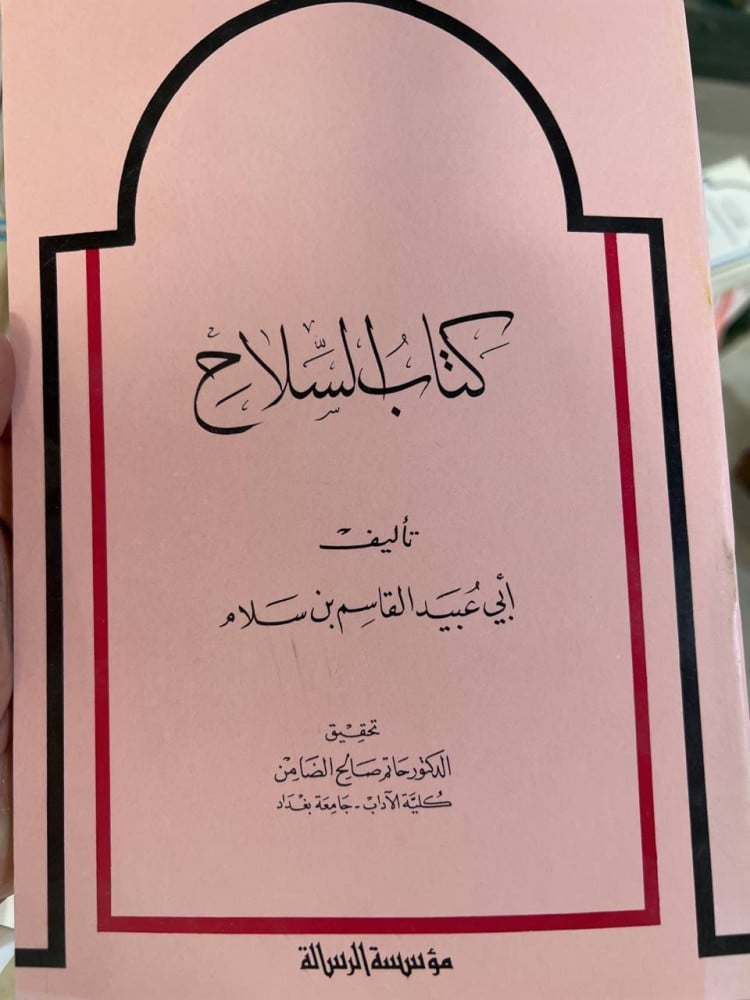 كتابُ السِّلاحِ
تأليف
أبي عُبيد القاسِم بن سَلام
تحقيق
الدكتور حاتم صَالح الضَامِن
كُليَّة الآداب - جَامِعَة بغدَاد
مؤسسة الرسالة